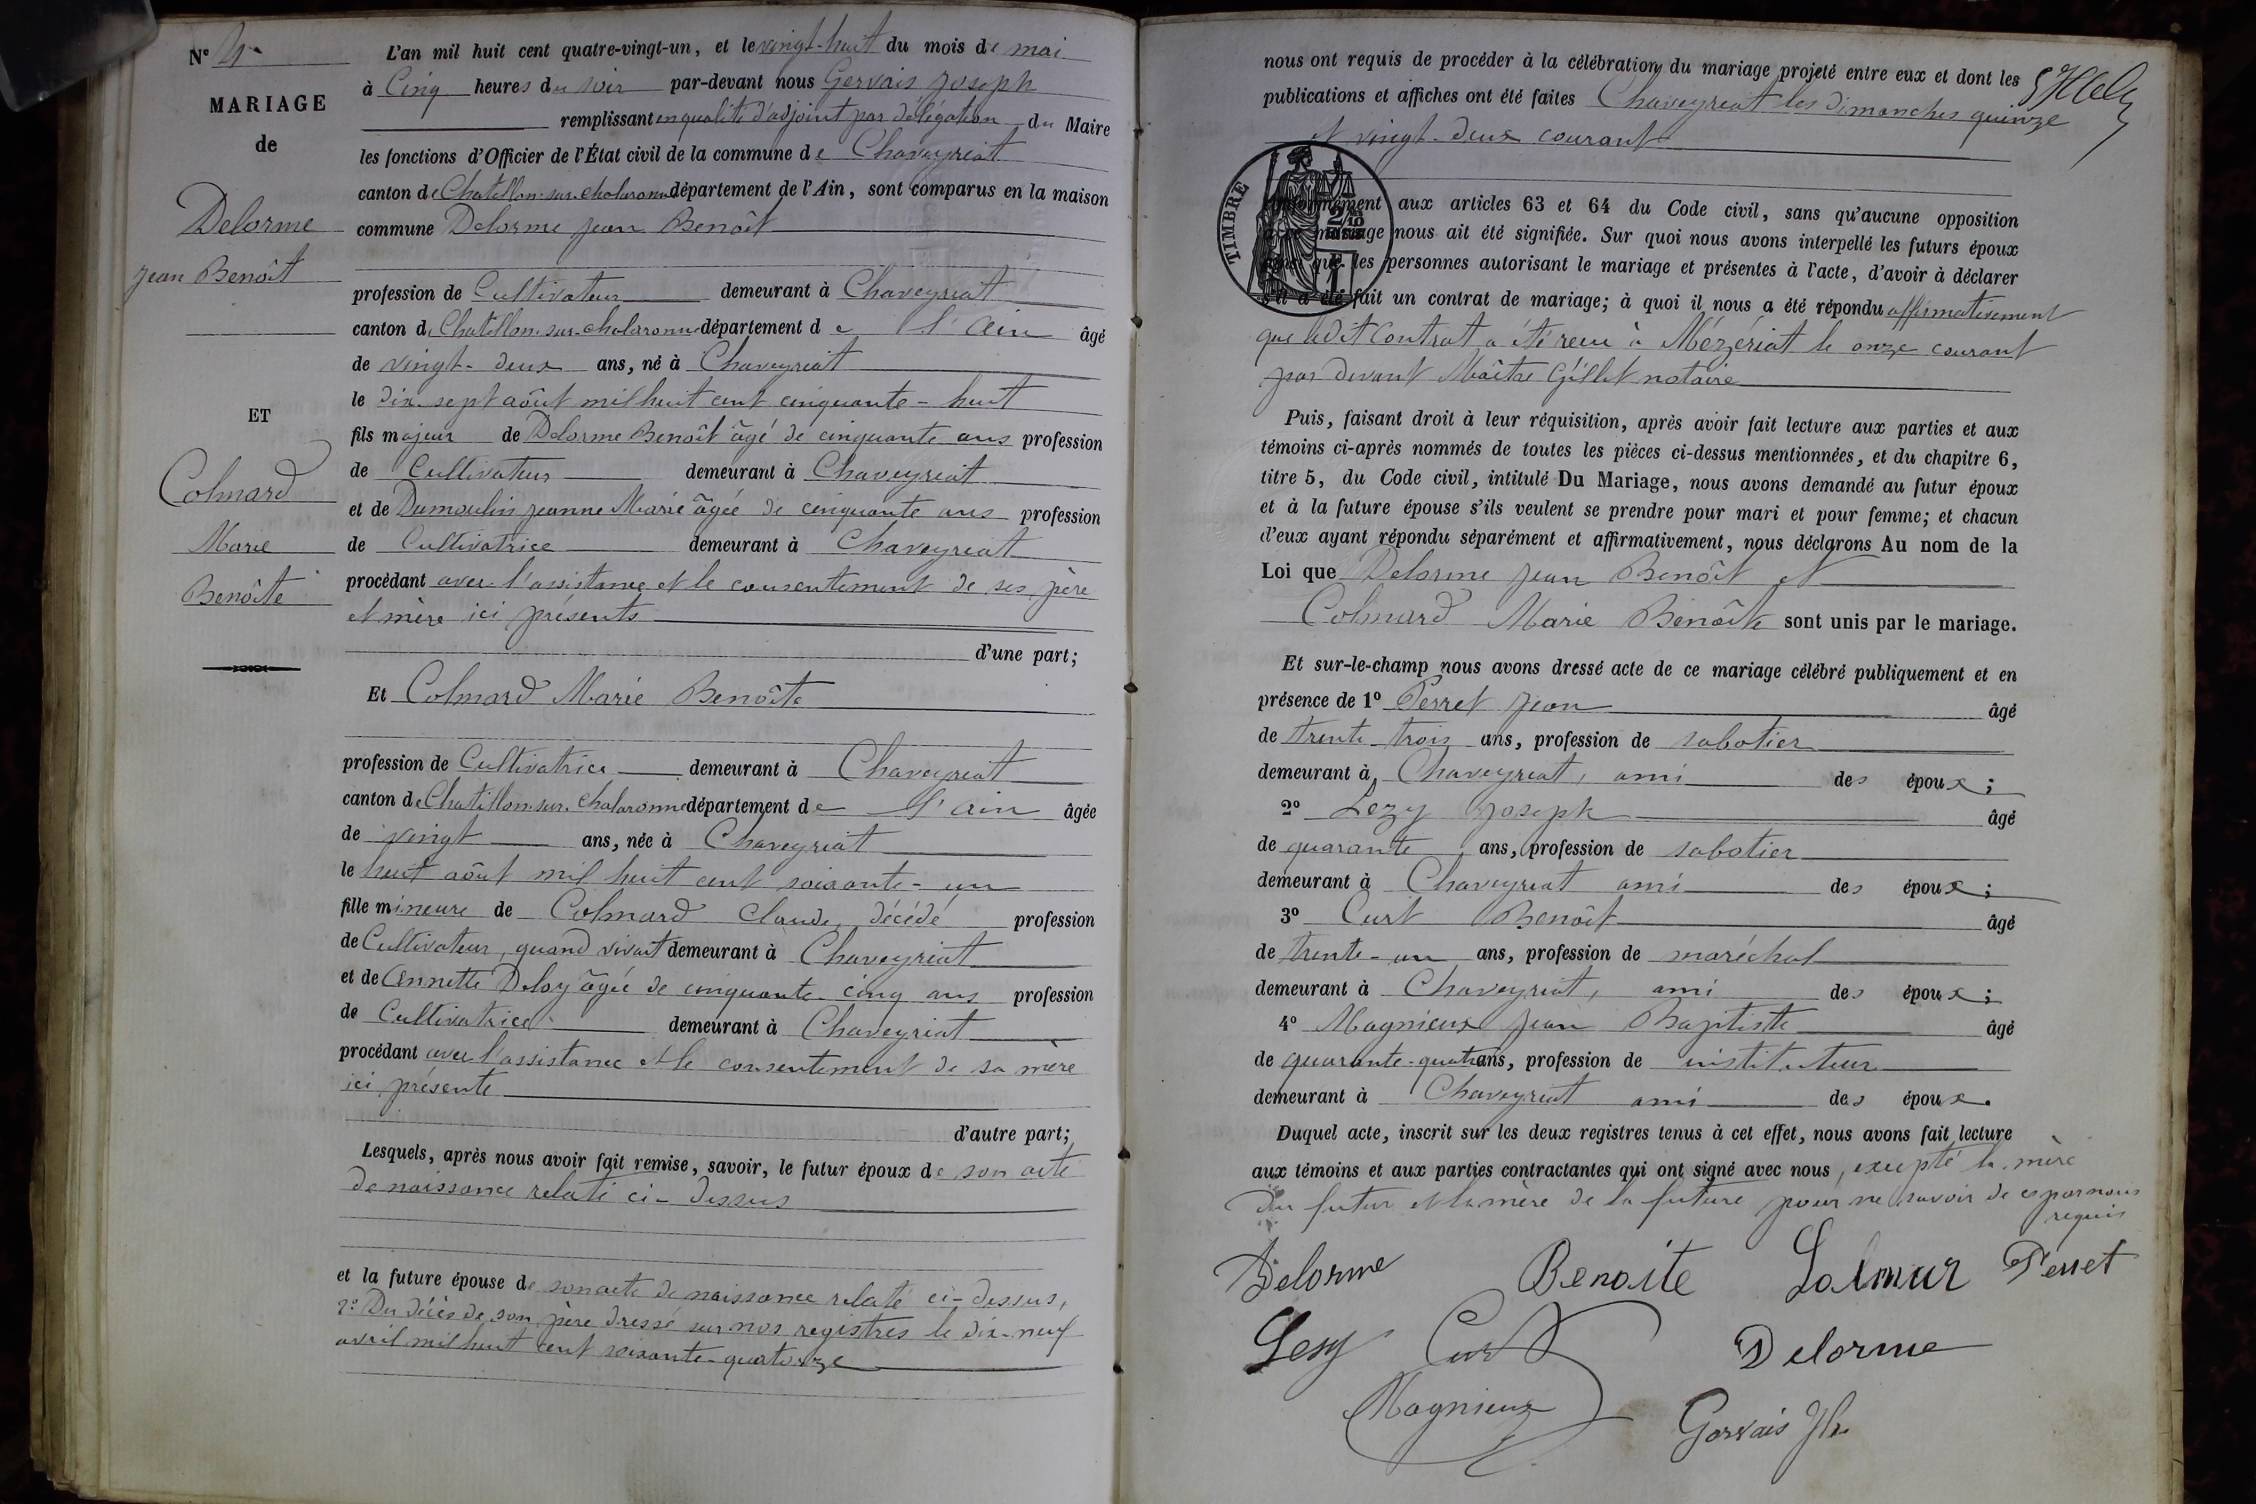 N° 4
MARIAGE
de
Delorme
Jean Benoît
ET
Colmard
Marie
Benoîte
L'an mil huit cent quatre-vingt-un, et le vingt-huit du mois de mai
à Cinq heures du soir par-devant nous Gervais Joseph
remplissant en qualité d'adjoint par délégation du Maire
les fonctions d'Officier de l'État civil de la commune de Chaveyriat
canton de Chatillon-sur-Chalaronne département de l'Ain, sont comparus en la maison
commune Delorme Jean Benoît
profession de Cultivateur demeurant à Chaveyriat
canton de Chatillon-sur-chalaronne département de l'Ain âgé
de vingt-deux ans, né à Chaveyriat
le dix-sept août mil huit cent cinquante-huit
fils majeur de Delorme Benoît âgé de cinquante ans profession
de Cultivateur demeurant à Chaveyriat
et de Dumoulin Jeanne Marie âgée de cinquante ans profession
de Cultivatrice demeurant à Chaveyriat
procédant avec l'assistance et le consentement de ses père
et mère ici présents
d'une part;
Et Colmard Marie Benoîte
profession de Cultivatrice demeurant à Chaveyriat
canton de Chatillon-sur-Chalaronne département de l'Ain âgée
de vingt ans, née à Chaveyriat
le huit août mil huit cent soixante-un
fille mineure de Colmard Claude, décédé profession
de Cultivateur, quand vivait demeurant à Chaveyriat
et de Annette Deloy âgée de cinquante-cinq ans profession
de Cultivatrice demeurant à Chaveyriat
procédant avec l'assistance et le consentement de sa mère
ici présente
d'autre part;
Lesquels, après nous avoir fait remise, savoir, le futur époux de son acte
de naissance relaté ci-dessus
et la future épouse de son acte de naissance relaté ci-dessus,
2° Du décès de son père dressé sur nos registres le dix-neuf
avril mil huit cent soixante-quatorze
nous ont requis de procéder à la célébration du mariage projeté entre eux et dont les
publications et affiches ont été faites Chaveyriat les dimanches quinze
et vingt-deux courant
TIMBRE
2/10
1
conformément aux articles 63 et 64 du Code civil, sans qu'aucune opposition
à ce mariage nous ait été signifiée. Sur quoi nous avons interpellé les futurs époux
ainsi que les personnes autorisant le mariage et présentes à l'acte, d'avoir à déclarer
s'il a été fait un contrat de mariage; à quoi il nous a été répondu affirmativement
que ledit contrat a été reçu à Mézériat le onze courant
par devant Maître Gillet notaire
Puis, faisant droit à leur réquisition, après avoir fait lecture aux parties et aux
témoins ci-après nommés de toutes les pièces ci-dessus mentionnées, et du chapitre 6,
titre 5, du Code civil, intitulé Du Mariage, nous avons demandé au futur époux
et à la future épouse s'ils veulent se prendre pour mari et pour femme; et chacun
d'eux ayant répondu séparément et affirmativement, nous déclarons Au nom de la
Loi que Delorme Jean Benoît et
Colmard Marie Benoîte sont unis par le mariage.
Et sur-le-champ nous avons dressé acte de ce mariage célébré publiquement et en
présence de 1° Perret Jean âgé
de trente trois ans, profession de sabotier
demeurant à Chaveyriat, ami des époux;
2° Lezy Joseph âgé
de quarante ans, profession de sabotier
demeurant à Chaveyriat ami des époux;
3° Curt Benoît âgé
de trente-un ans, profession de maréchal
demeurant à Chaveyriat, ami des époux;
4° Magnieux Jean Baptiste âgé
de quarante-quatre ans, profession de instituteur
demeurant à Chaveyriat ami des époux.
Duquel acte, inscrit sur les deux registres tenus à cet effet, nous avons fait lecture
aux témoins et aux parties contractantes qui ont signé avec nous, excepté la mère
du futur et la mère de la future pour ne savoir de ce par nous
requis
Delorme Benoite Colmar Perret
Lesy Curt Delorme
Magnieux Gervais Jh